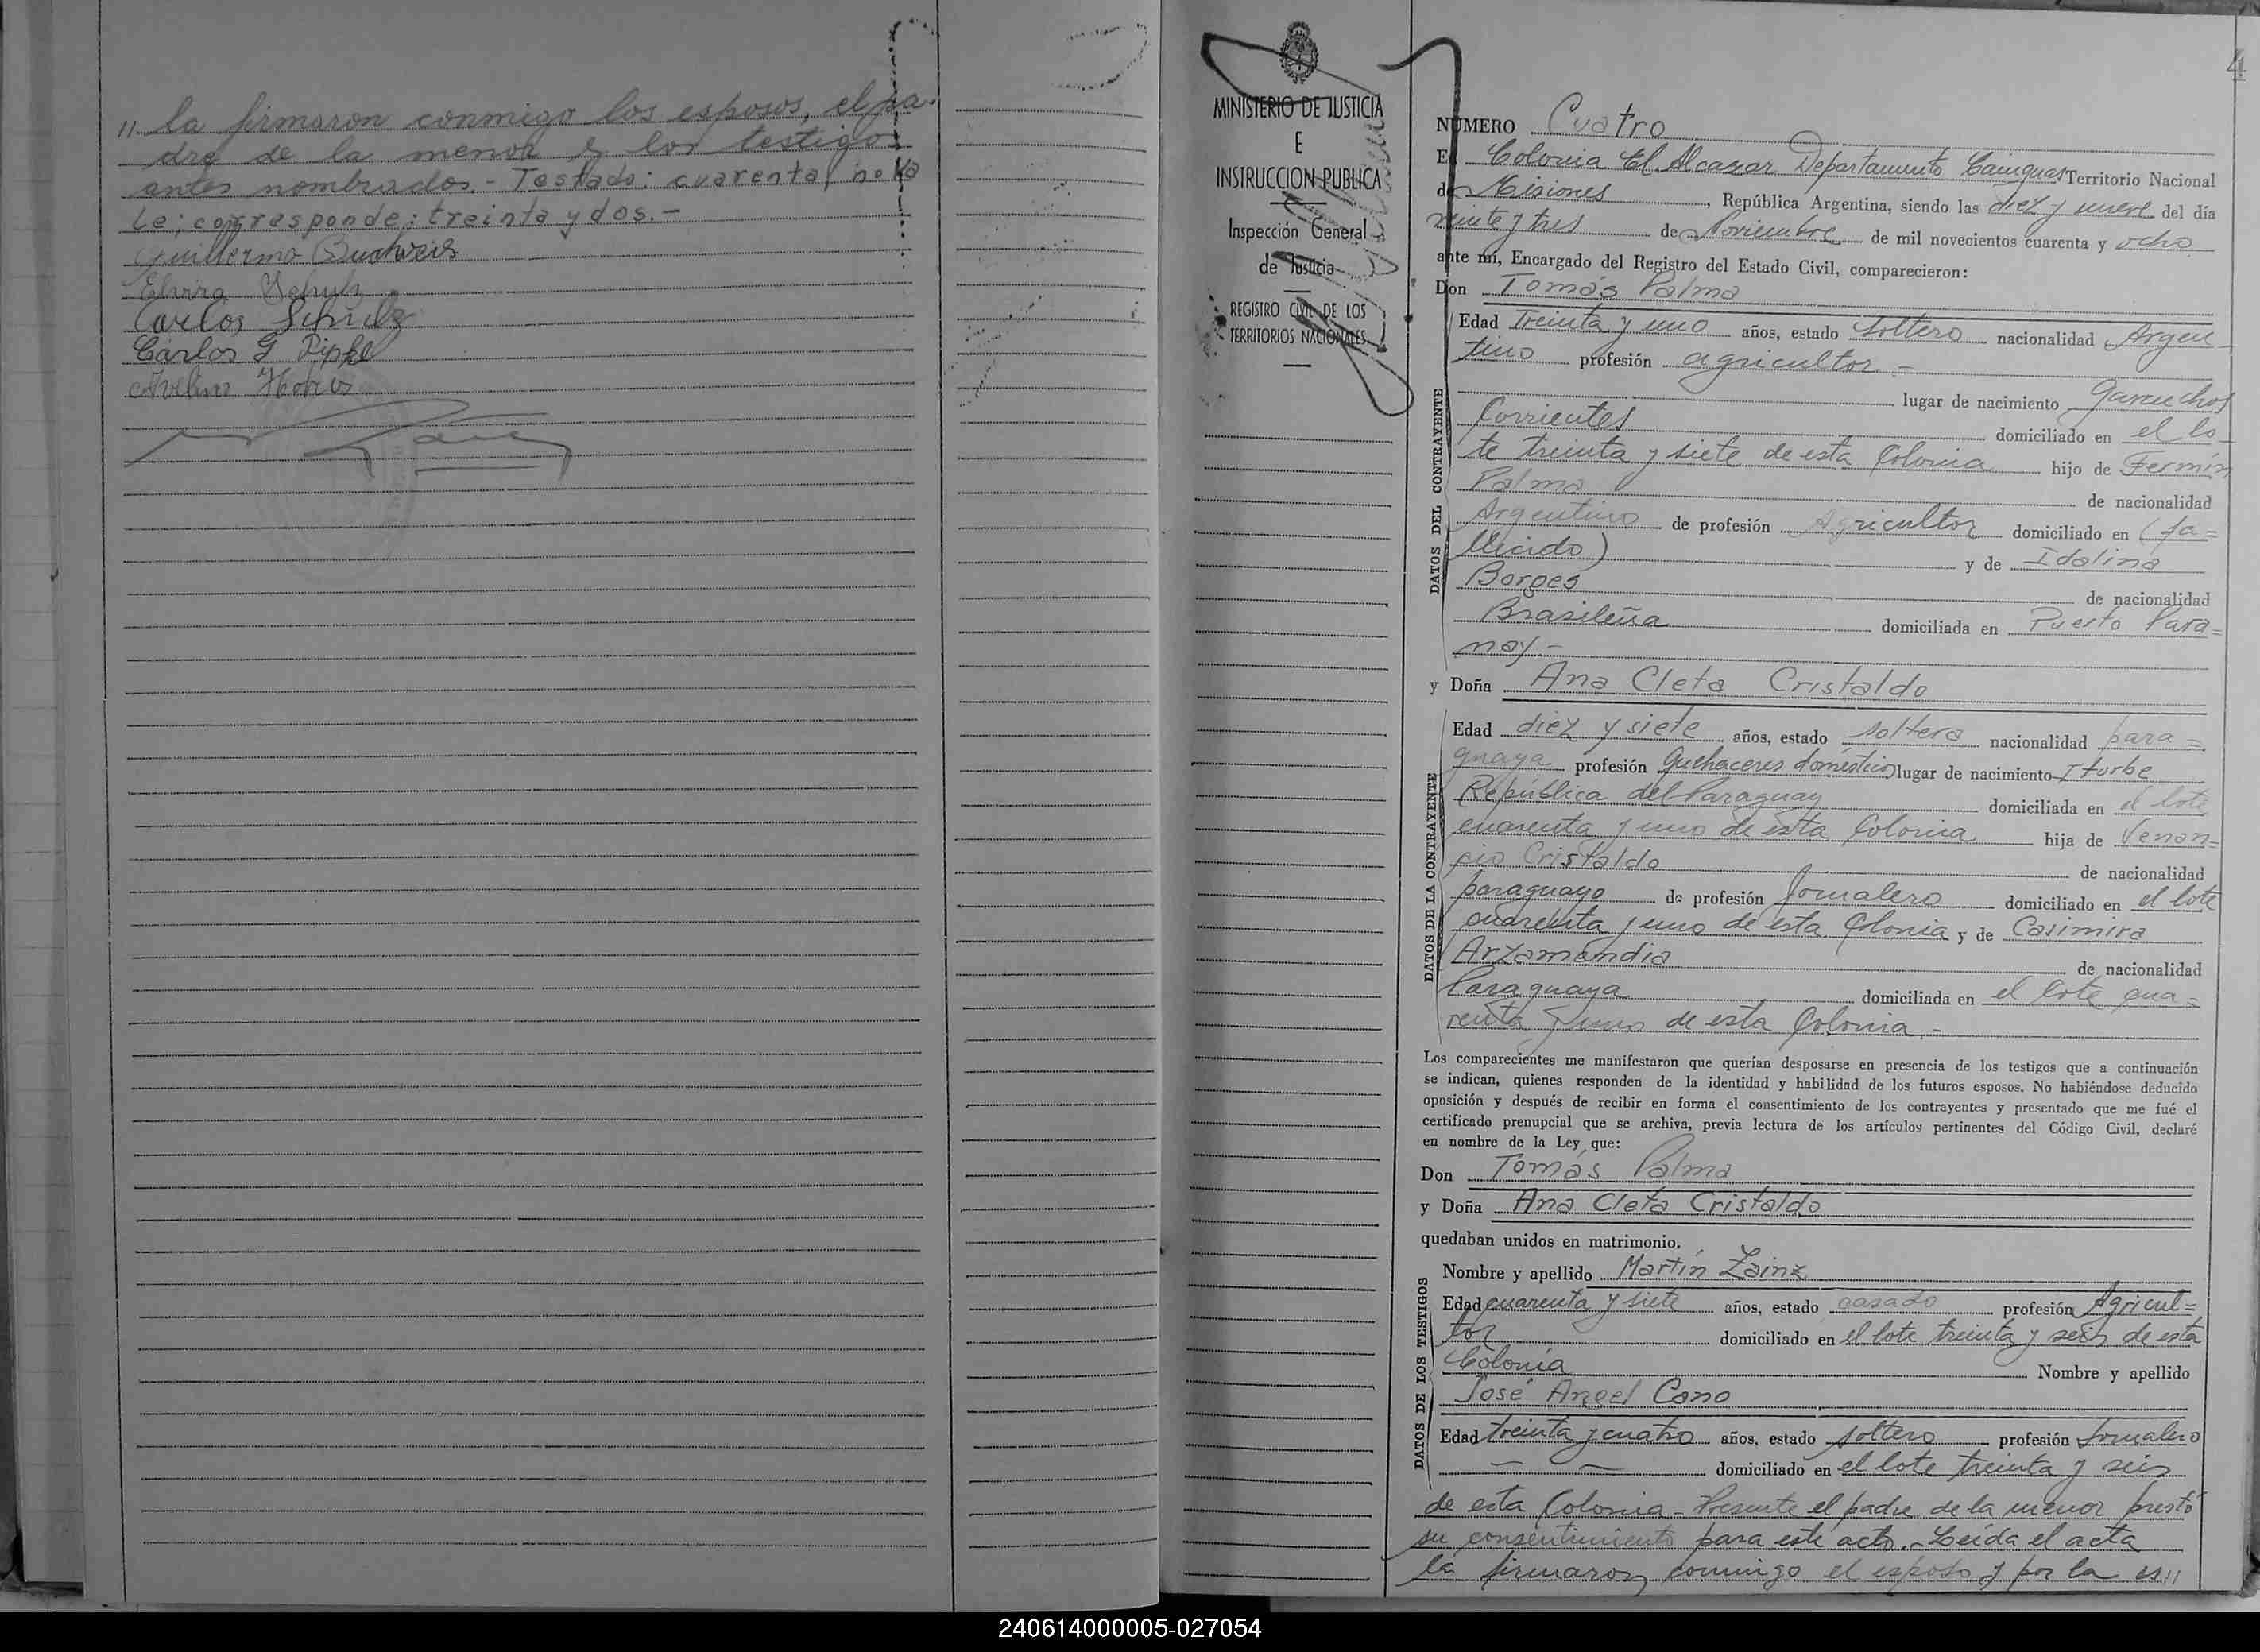 // la firmaron conmigo los esposos, el pa-
dre de la menor y los testigos
antes nombrados.- Testado: cuarenta, no va
le; corresponde: treinta y dos.-
Guillermo
Elvira Schulz
Carlos Schulz
Carlos G
Avelino
MINISTERIO DE JUSTICIA
E
INSTRUCCION PUBLICA
Inspección General
de Justicia
REGISTRO CIVIL DE LOS
TERRITORIOS NACIONALES
4
NUMERO Cuatro
En Colonia El Alcazar Departamento Cainguas Territorio Nacional
de Misiones, República Argentina, siendo las diez y nueve del día
veinte y tres de Noviembre de mil novecientos cuarenta y ocho
ante mí, Encargado del Registro del Estado Civil, comparecieron:
Don Tomás Palma
DATOS DEL CONTRAYENTE
Edad Treinta y uno años, estado soltero nacionalidad Argen-
tino profesión agricultor -
lugar de nacimiento Garruchos
Corrientes domiciliado en el lo-
te treinta y siete de esta Colonia hijo de Fermín
Palma de nacionalidad
Argentino de profesión Agricultor domiciliado en (fa=
llecido) y de Idalina
Borges de nacionalidad
Brasileña domiciliada en Puerto Para=
nay -
y Doña Ana Cleta Cristaldo
DATOS DE LA CONTRAYENTE
Edad diez y siete años, estado soltera nacionalidad para=
guaya profesión Quehaceres domésticos lugar de nacimiento Iturbe
República del Paraguay domiciliada en el lote
cuarenta y uno de esta Colonia hija de Venan=
cio Cristaldo de nacionalidad
paraguayo de profesión Jornalero domiciliado en el lote
cuarenta y uno de esta Colonia y de Casimira
Arzamendia de nacionalidad
Paraguaya domiciliada en el lote cua=
renta y uno de esta Colonia -
Los comparecientes me manifestaron que querían desposarse en presencia de los testigos que a continuación
se indican, quienes responden de la identidad y habilidad de los futuros esposos. No habiéndose deducido
oposición y después de recibir en forma el consentimiento de los contrayentes y presentado que me fué el
certificado prenupcial que se archiva, previa lectura de los artículos pertinentes del Código Civil, declaré
en nombre de la Ley que:
Don Tomás Palma
y Doña Ana Cleta Cristaldo
quedaban unidos en matrimonio.
DATOS DE LOS TESTIGOS
Nombre y apellido Martín Zainz
Edad cuarenta y siete años, estado casado profesión Agricul=
tor domiciliado en el lote treinta y seis de esta
Colonia Nombre y apellido
José Angel Cano
Edad treinta y cuatro años, estado soltero profesión Jornalero
domiciliado en el lote treinta y seis
de esta Colonia - Presente el padre de la menor prestó
su consentimiento para este acto.- Leída el acta
la firmaron conmigo el esposo y por la es//
240614000005-027054